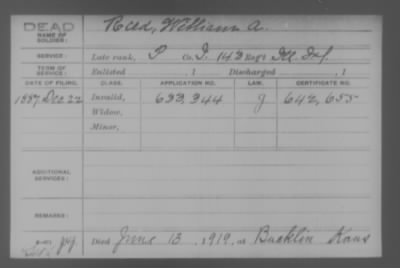 DEAD
NAME OF SOLDIER: Reed, William A.
SERVICE: Late rank, P Co. I. 143 Reg't Ill. Inf.
TERM OF SERVICE: Enlisted , 1 Discharged , 1
DATE OF FILING. CLASS. APPLICATION NO. LAW. CERTIFICATE NO.
1887, Dec 22 Invalid, 633,344 g 642,655
Widow,
Minor,
ADDITIONAL SERVICES:
REMARKS:
Died June 13, 1919, at Bucklin Kans